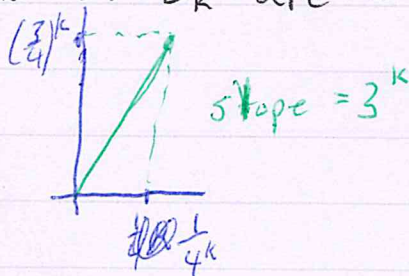 (3/4)^k
slope = 3^k
1/4^k